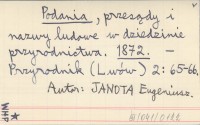 Podania, przesądy i
nazwy ludowe w dziedzinie
przyrodnictwa. 1872. –
Przyrodnik (Lwów) 2: 65-66.
Autor: JANOTA Eugeniusz.
WHP